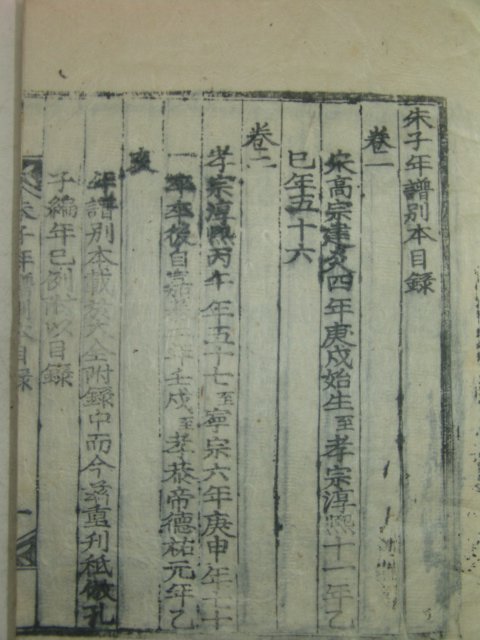 朱子年譜別本目錄
卷一
宋高宗建炎四年庚戌始生至孝宗淳熙十一年乙
巳年五十六
卷二
孝宗淳熙丙午年五十七至寧宗六年庚申年七十
一卒卒後自寧二年壬戌至孝恭帝德祐元年乙
亥
年譜別本載於大全附錄中而今玆重刊秪倣孔
子編年已列附以目錄
朱子年譜別本目錄 一